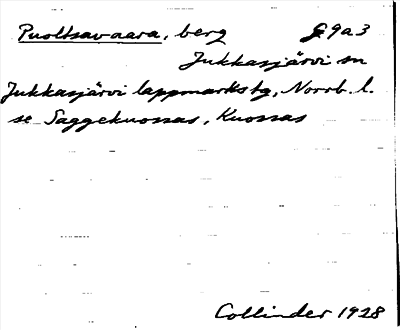 Puoltsavaara, berg 9a3
Jukkasjärvi sn
Jukkasjärvi lappmarks tg, Norrb. l.
se Saggekuossas, Kuossas
Collinder 1928